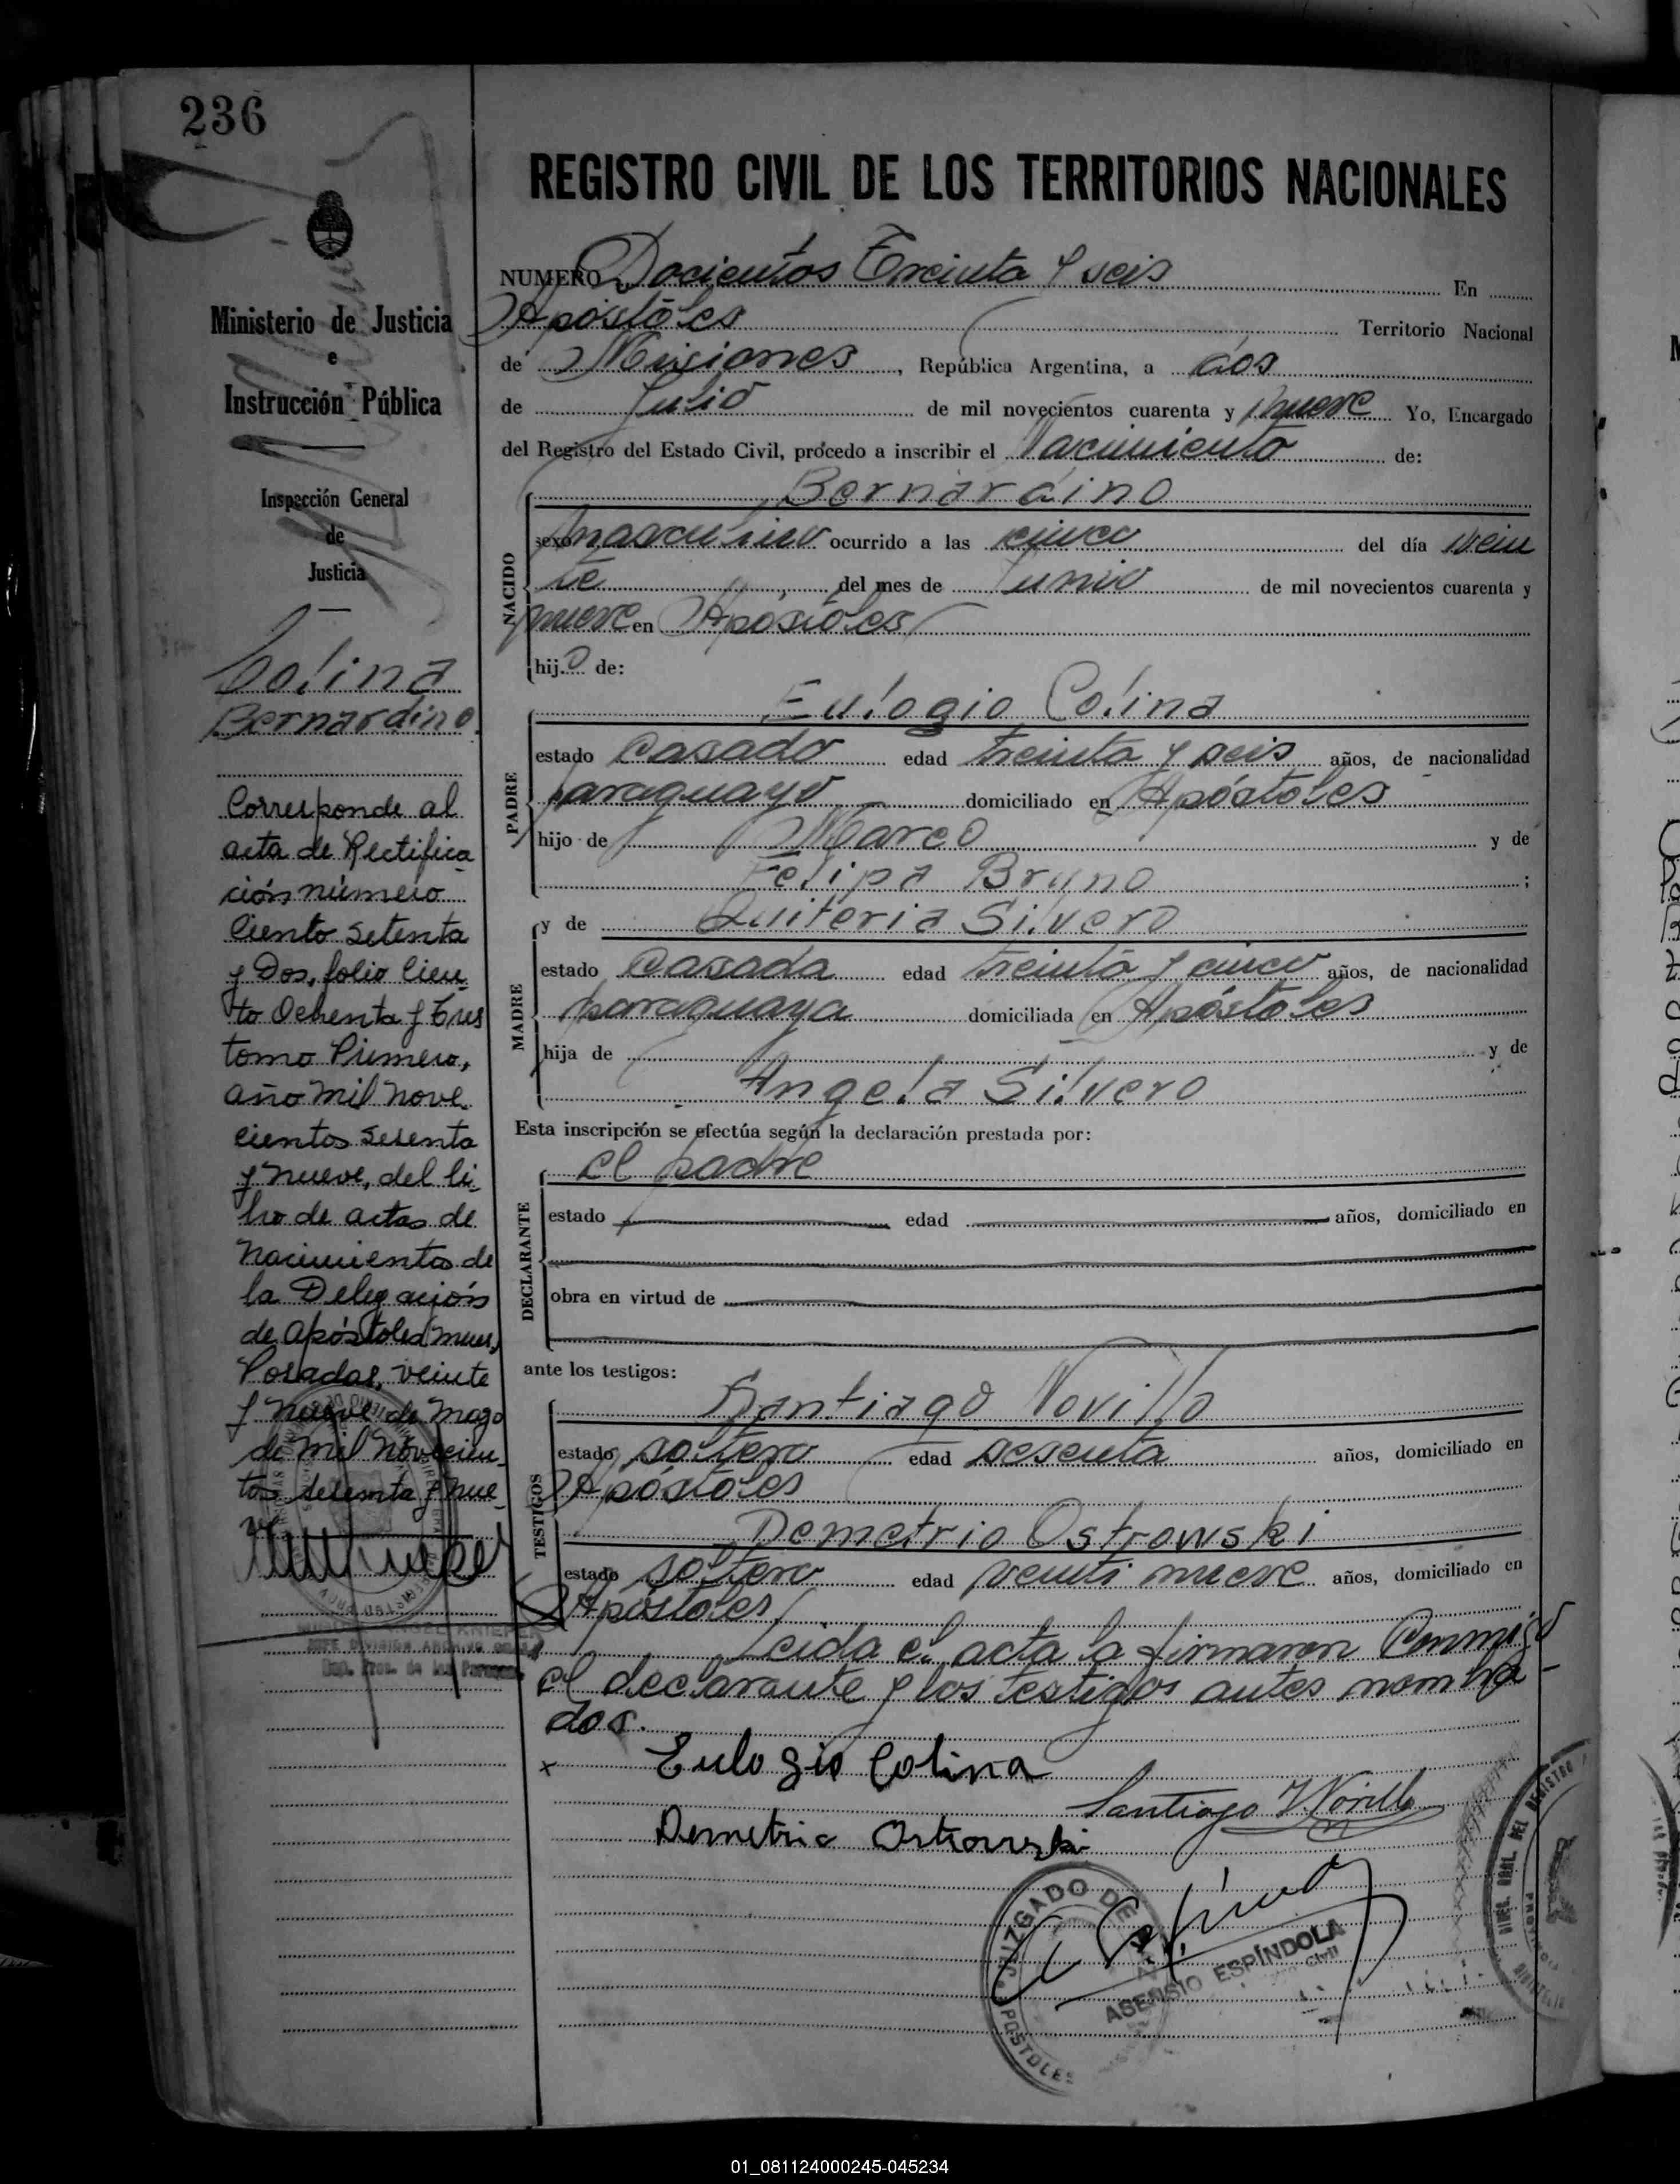 236
REGISTRO CIVIL DE LOS TERRITORIOS NACIONALES
Ministerio de Justicia
e
Instrucción Pública
Inspección General
de
Justicia
Colina
Bernardino
Corresponde al
acta de Rectifica
ción número
Ciento setenta
y Dos, folio Cien
to Ochenta y Tres
tomo Primero,
año mil nove
cientos setenta
y nueve, del li
bro de actas de
Nacimientos de
la Delegación
de Apóstoles
Posadas, veinte
y nueve de mayo
de mil novecien
tos setenta y nue
NUMERO Docientos Treinta y seis En
Apóstoles Territorio Nacional
de Misiones, República Argentina, a dos
de Julio de mil novecientos cuarenta y nueve Yo, Encargado
del Registro del Estado Civil, procedo a inscribir el Nacimiento de:
Bernardino
NACIDO
sexo masculino ocurrido a las cinco del día vein
te del mes de Junio de mil novecientos cuarenta y
nueve en Apóstoles
hijo de:
Eulogio Colina
PADRE
estado Casado edad treinta y seis años, de nacionalidad
paraguayo domiciliado en Apóstoles
hijo de Marco y de
Felipa Bryno ;
y de Quiteria Silvero
MADRE
estado Casada edad treinta y cinco años, de nacionalidad
paraguaya domiciliada en Apóstoles
hija de y de
Angela Silvero
Esta inscripción se efectúa según la declaración prestada por:
el padre
DECLARANTE
estado edad años, domiciliado en
obra en virtud de
ante los testigos:
Santiago Novillo
TESTIGOS
estado soltero edad sesenta años, domiciliado en
Apóstoles
Demetrio Ostrowski
estado soltero edad veinti nueve años, domiciliado en
Apóstoles
Leida el acta la firmaron Conmigo
el declarante y los testigos antes nombra-
dos.
x Eulogio Colina
Santiago Novillo
Demetrio Ostrowski
JUZGADO DE PAZ
APOSTOLES
ASENSIO ESPÍNDOLA
01_081124000245-045234